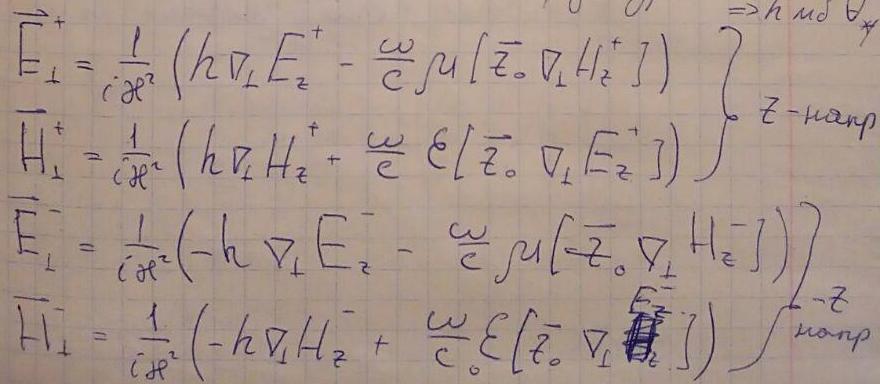 => и дм ∀
\vec{E}_⊥^+ = \frac{1}{iæ^2} (h∇_⊥E_z^+ - \frac{ω}{c} μ[\bar{z}_0 ∇_⊥H_z^+])
\vec{H}_⊥^+ = \frac{1}{iæ^2} (h∇_⊥H_z^+ + \frac{ω}{c} ε[\bar{z}_0 ∇_⊥E_z^+]) } z-напр
\vec{E}_⊥^- = \frac{1}{iæ^2} (-h∇_⊥E_z^- - \frac{ω}{c} μ[\bar{z}_0 ∇_⊥H_z^-])
\vec{H}_⊥^- = \frac{1}{iæ^2} (-h∇_⊥H_z^- + \frac{ω}{c} ε[\bar{z}_0 ∇_⊥E_z^-]) } -z напр